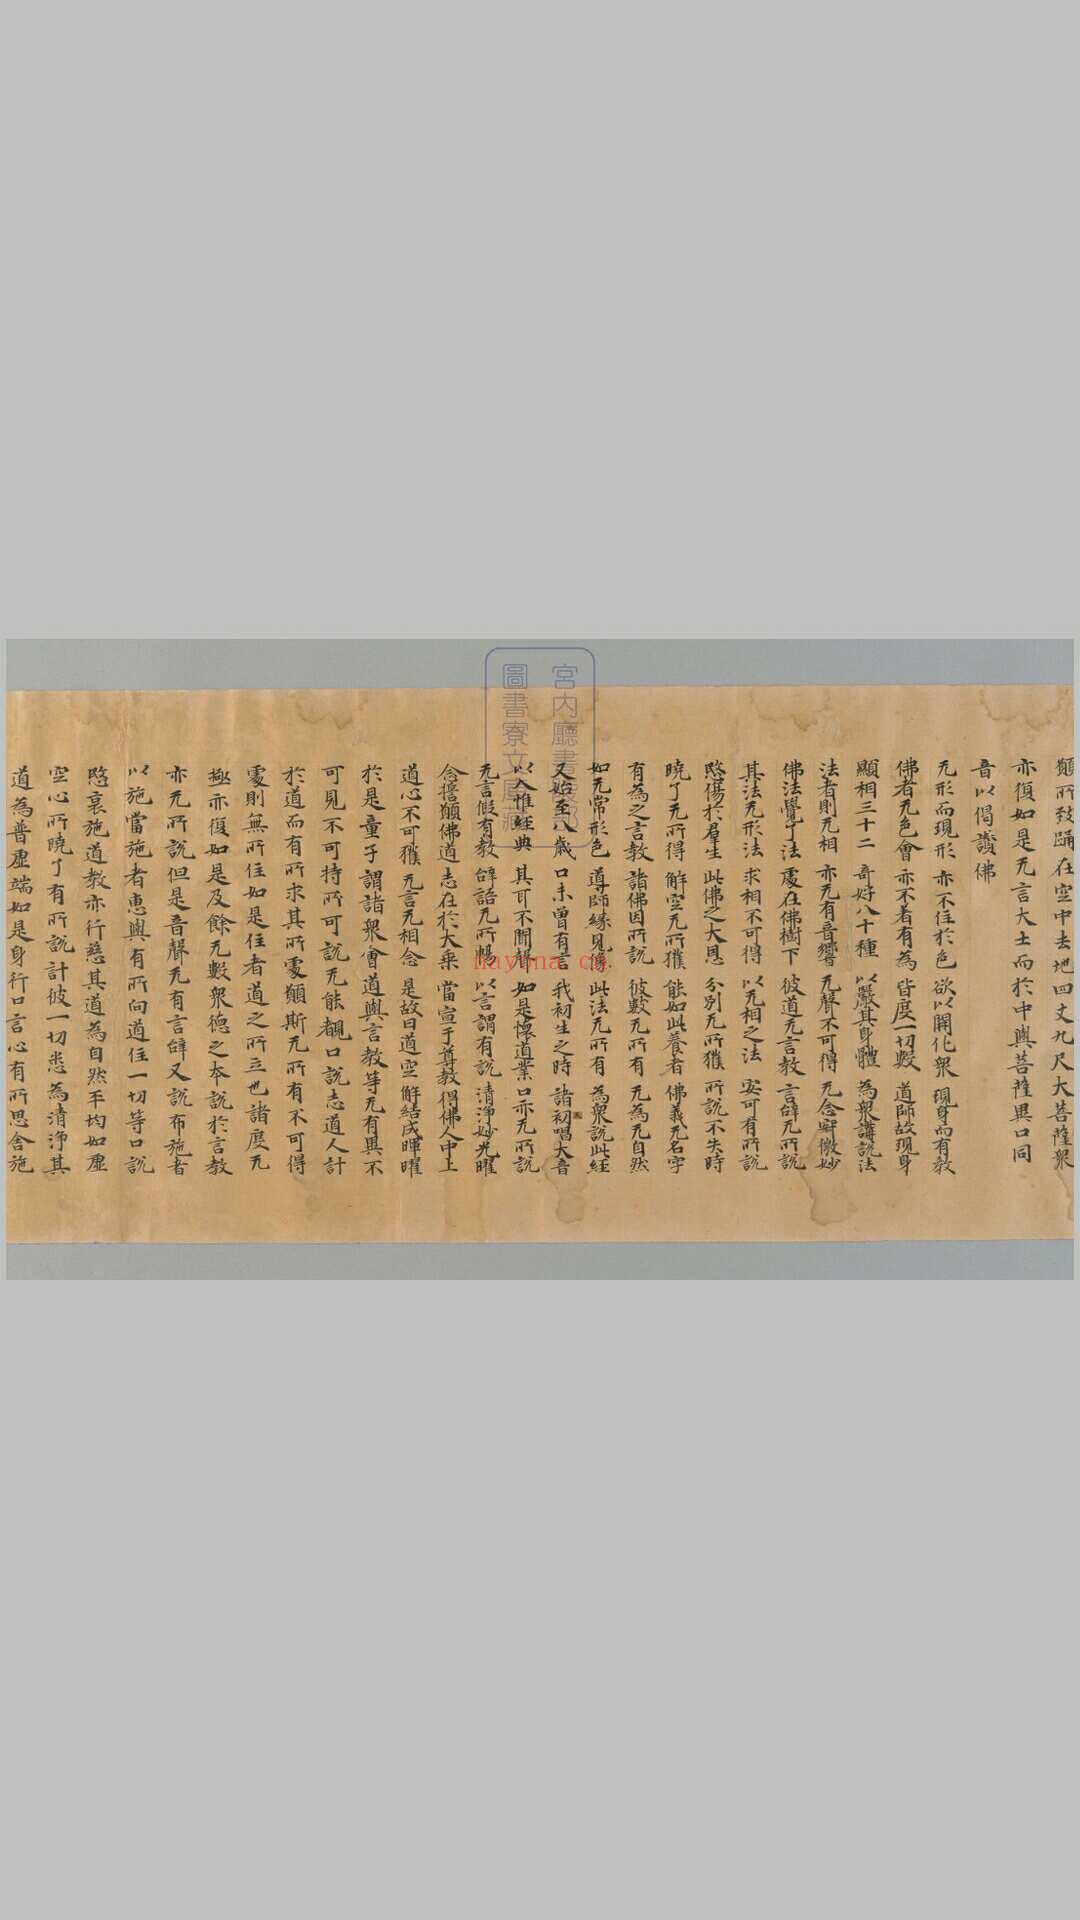 顛所致踊在空中去地四丈九尺大菩薩衆
亦復如是无言大士而於中與菩薩異口同
音以偈讚佛
无形而現形 亦不住於色 欲以開化衆 現身而有教
佛者无色會 亦不著有為 皆度一切數 道師故現身
顯相三十二 奇好八十種 以嚴其身體 為衆講說法
法者則无相 亦无有音響 无聲不可得 无念寂微妙
佛法覺了法 處在佛樹下 彼道无言教 言辞无所說
其法无形法 求相不可得 以无相之法 安可有所說
愍傷於羣生 此佛之大恩 分別无所獲 所說不失時
曉了无所得 解空无所獲 能如此養者 佛義无名字
有為之言教 諸佛因所說 彼數无所有 无為无自然
如无常形色 導師緣見像 此法无所有 為衆說此經
又始至八歲 口未曾有言 我初生之時 諸初唱大音
以入惟經典 其可不聞聲 如是懷道業 口亦无所說
无言假有教 辞詻无所暢 以言謂有說 清淨妙光曜
念擔顛佛道 志在於大乘 當宣于尊教 得佛人中上
道心不可獲 无言无相念 是故曰道空 解結成暉曜
於是童子謂諸衆會道與言教等无有異不
可見不可持所可說无能覩口說志道人計
於道而有所求其所處顛斯无所有不可得
處則無所住如是住者道之所立也諸度无
極亦復如是及餘无數衆德之本說於言教
亦无所說但是音聲无有言辞又說布施者
以施當施者惠與有所向道住一切等口說
愍哀施道教亦行慈其道為自然平均如虛
空心所曉了有所說計彼一切悉為清淨其
道為普虛端如是身行口言心有所思舍施
宮内廳書陵部
圖書寮文庫藏